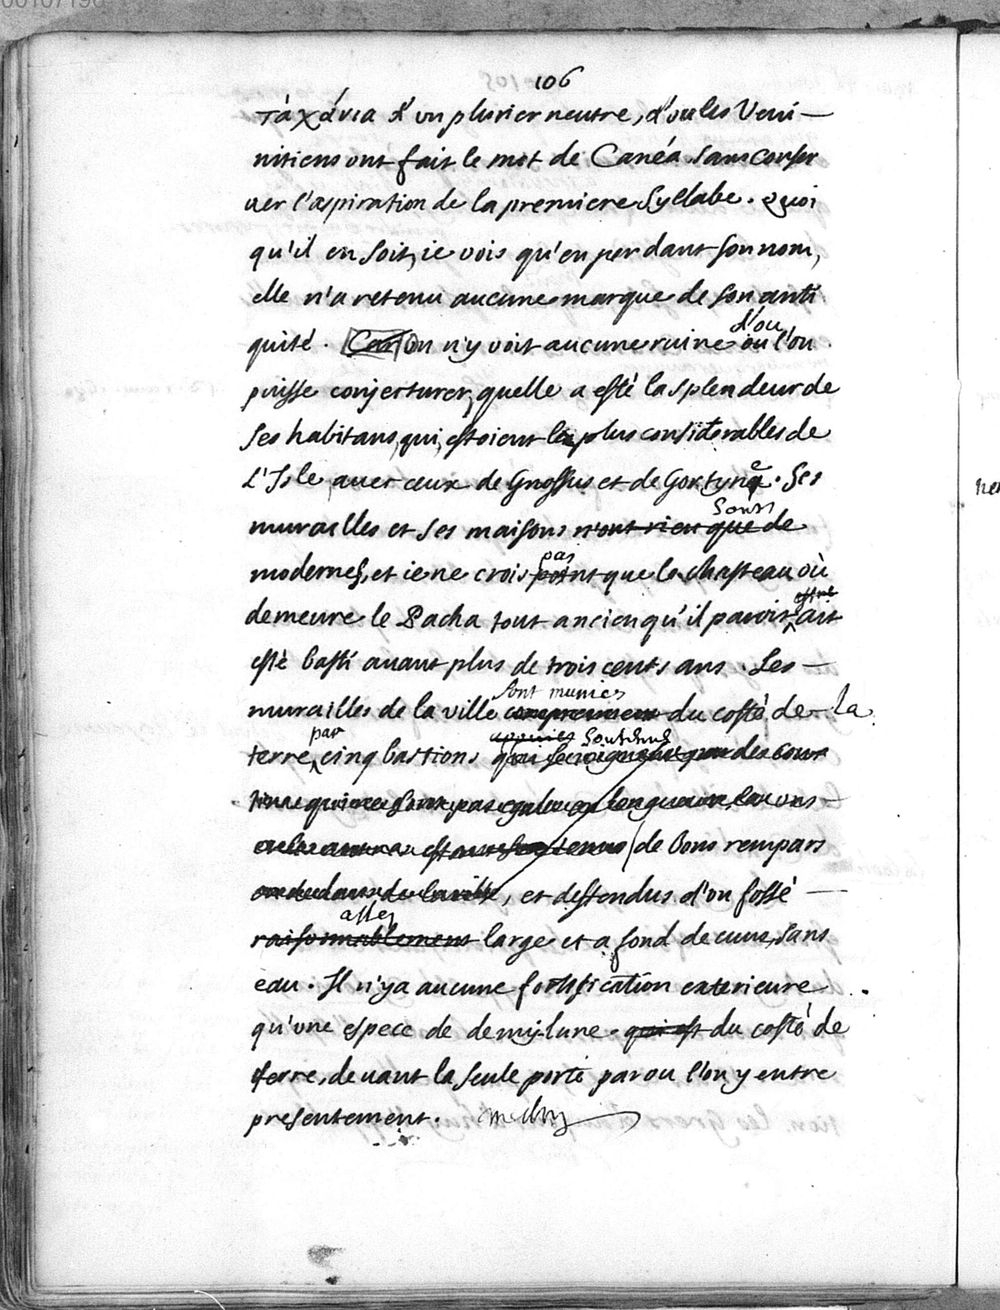 106
τὰ χάνια d'un plurier neutre, d'ou les Veni-
nitiens ont fait le mot de Canéa sans conser
uer l'aspiration de la premiere Syllabe. Quoi
qu'il en soit, ie vois qu'en perdant son nom,
elle n'a retenu aucune marque de son anti
d'ou
quité. Car On n'y voit aucune ruine ou l'on
puisse conjecturer, quelle a esté la splendeur de
ses habitans, qui estoient les plus considerables de
L'Isle auec ceux de Gnossus et de Gortyne. Ses
sont
murailles et ses maisons n'ont rien que de
pas
modernes, et ie ne crois point que le chasteau où
estre
demeure le Pacha tout ancien qu'il paroist ait
esté basti auant plus de trois cents ans. Les
sont munies
murailles de la ville comprennent du costé de la
par
appuiés soutenus
terre cinq bastions qui
de bons rempars
au dedans de la ville, et deffendus d'vn fossé
assez
raisonnablement large et a fond de cuue, sans
eau. Il n'ya aucune fortification exterieure
qu'une espece de demy-lune qui est du costé de
terre, deuant la seule porte par ou l'on y entre
presentement.